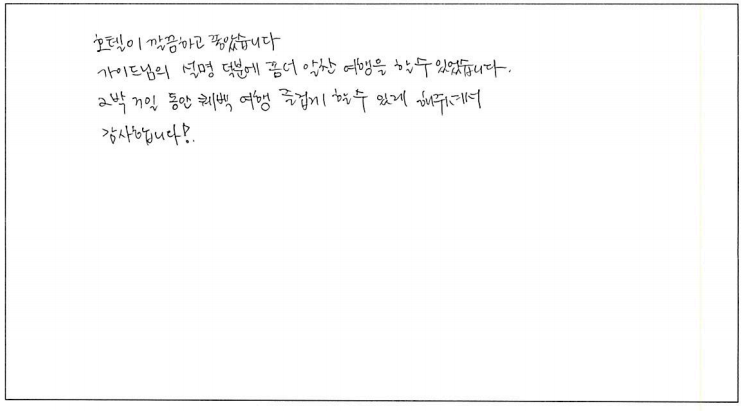 호텔이 깔끔하고 좋았습니다
가이드님의 설명 덕분에 좀더 알찬 여행을 할 수 있었습니다.
2박 3일 동안 퀘백 여행 즐겁게 할 수 있게 해주셔서
감사합니다!.